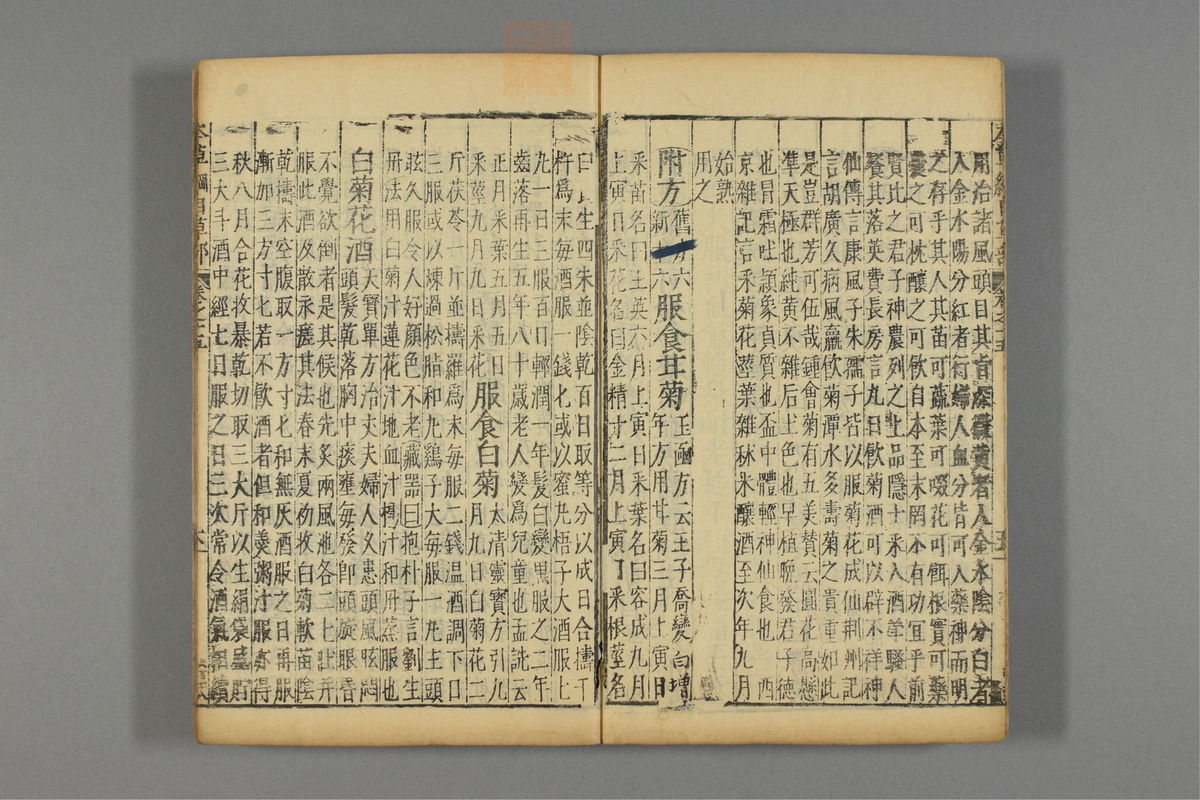 用治諸風頭目其旨深微黃者入金水陰分白者
入金水陽分紅者行婦人血分皆可入藥神而明
之存乎其人其苗可蔬葉可啜花可餌根實可藥
囊之可枕釀之可飲自本至末罔不有功宜乎前
賢比之君子神農列之上品隱士采入酒斝騷人
餐其落英費長房言九日飲菊酒可以辟不祥神
仙傳言康風子朱孺子皆以服菊花成仙荆州記
言胡廣久病風羸飲菊潭水多壽菊之貴重如此
是豈群芳可伍哉鍾會菊有五美贊云圓花高懸
準天極也純黃不雜后土色也早植晚發君子德
也冒霜吐穎象貞質也盃中體輕神仙食也西
京雜記言采菊花莖葉雜秫米釀酒至次年九月
始熟
用之
附方 舊六 新六 服食甘菊 玉函方云王子喬變白增
年方用甘菊三月上寅日
采苗名曰玉英六月上寅日采葉名曰容成九月
上寅日采花名曰金精十二月上寅日采根莖名
曰長生四味並陰乾百日取等分以成日合擣千
杵爲末每酒服一錢匕或以蜜丸梧子大酒服七
九一日三服百日輕潤一年髮白變黑服之二年
齒落再生五年八十歲老人變爲兒童也孟詵云
正月采葉五月五日
采莖九月九日采花 服食白菊 太清靈寶方引九
月九日白菊花二
斤茯苓一斤並擣羅爲末每服二錢温酒調下日
三服或以煉過松脂和丸鷄子大每服一丸主頭
眩久服令人好顔色不老藏器曰抱朴子言劉生
丹法用白菊汁蓮花汁地血汁樗汁和丹蒸服也
白菊花酒 天寶單方治丈夫婦人久患頭風眩悶
頭髮乾落胸中痰壅每發即頭旋眼昏
不覺欲倒者是其候也先灸兩風池各二七壯并
服此酒及散永瘥其法春末夏初收白菊軟苗陰
乾擣末空腹取一方寸匕和無灰酒服之日再服
漸加三方寸匕若不飲酒者但和羹粥汁服亦得
秋八月合花收暴乾切取三大斤以生絹袋盛貯
三大斗酒中經七日服之日三次常令酒氣相續
本草綱目草部 卷之十五